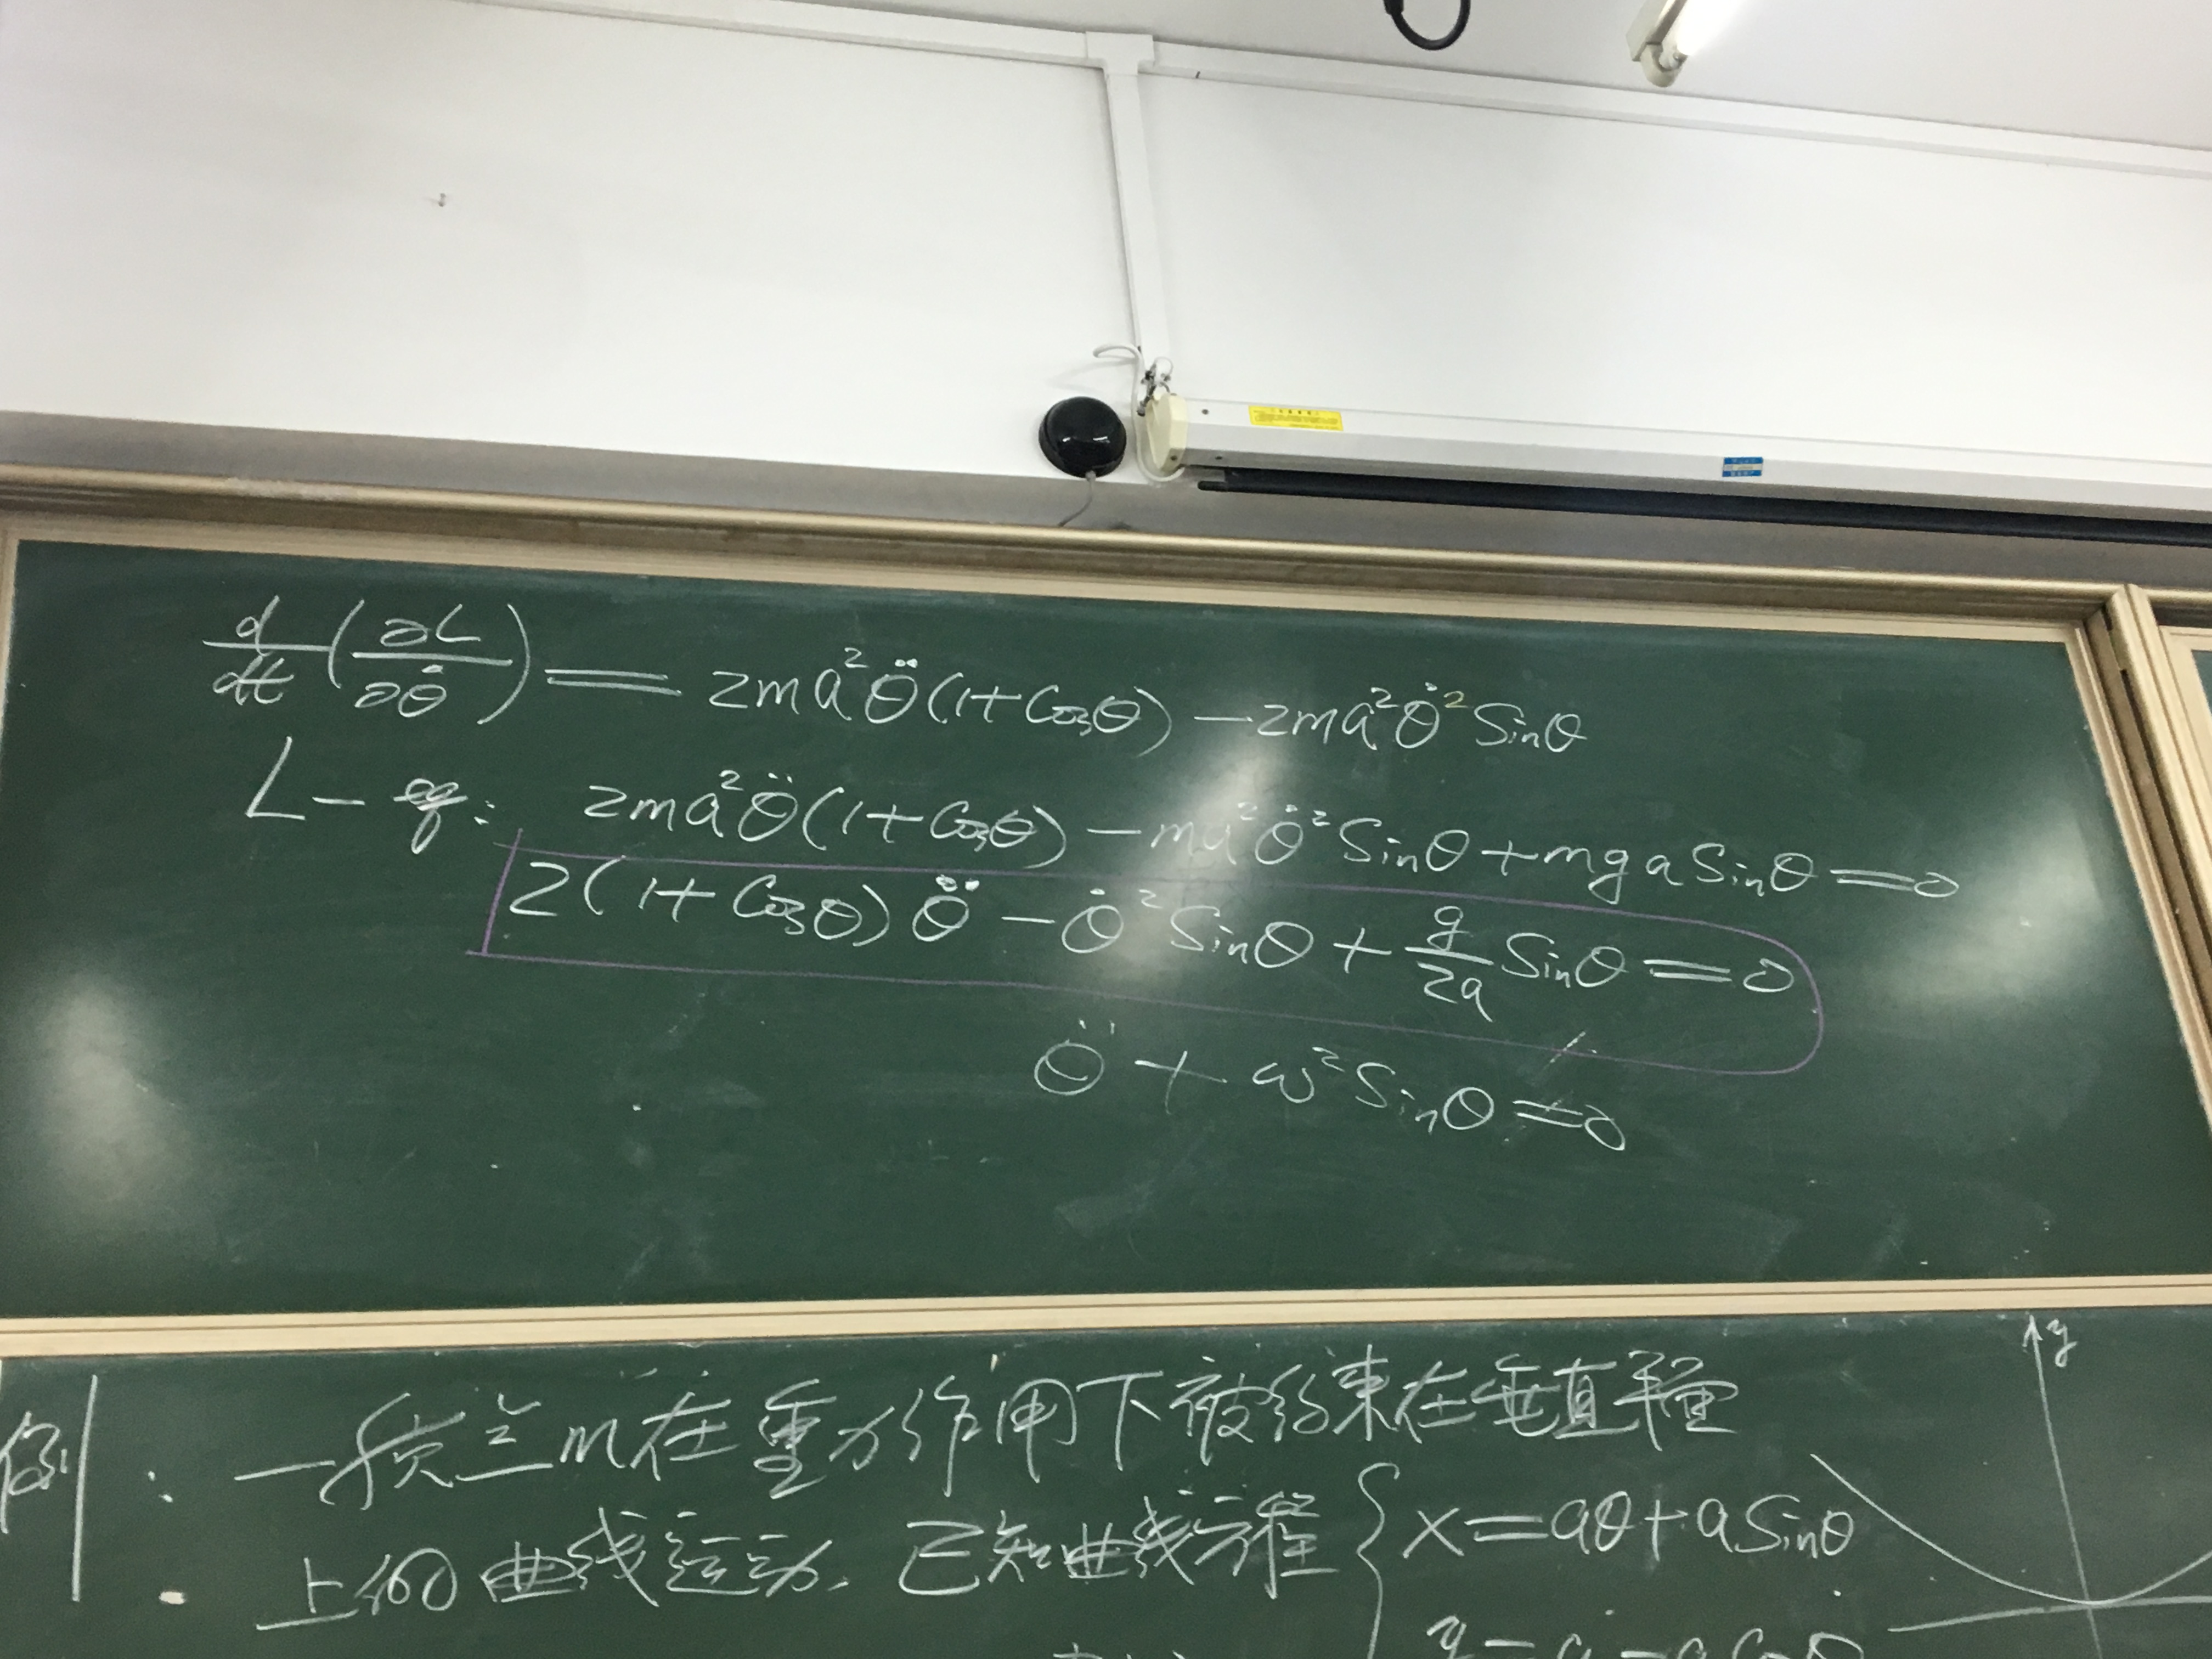 d/dt (∂L/∂θ̇) = 2ma²θ̈(1+Cosθ) − 2ma²θ̇² Sinθ
L-eq: 2ma²θ̈(1+Cosθ) − ma²θ̇² Sinθ + mga Sinθ = 0
2(1+Cosθ)θ̈ − θ̇² Sinθ + g/2a Sinθ = 0
θ̈ + ω² Sinθ = 0
y
例: 一质点m在重力作用下被约束在垂直平面
上的曲线运动. 已知曲线方程 { x = aθ + a Sinθ
y = a − a Cosθ